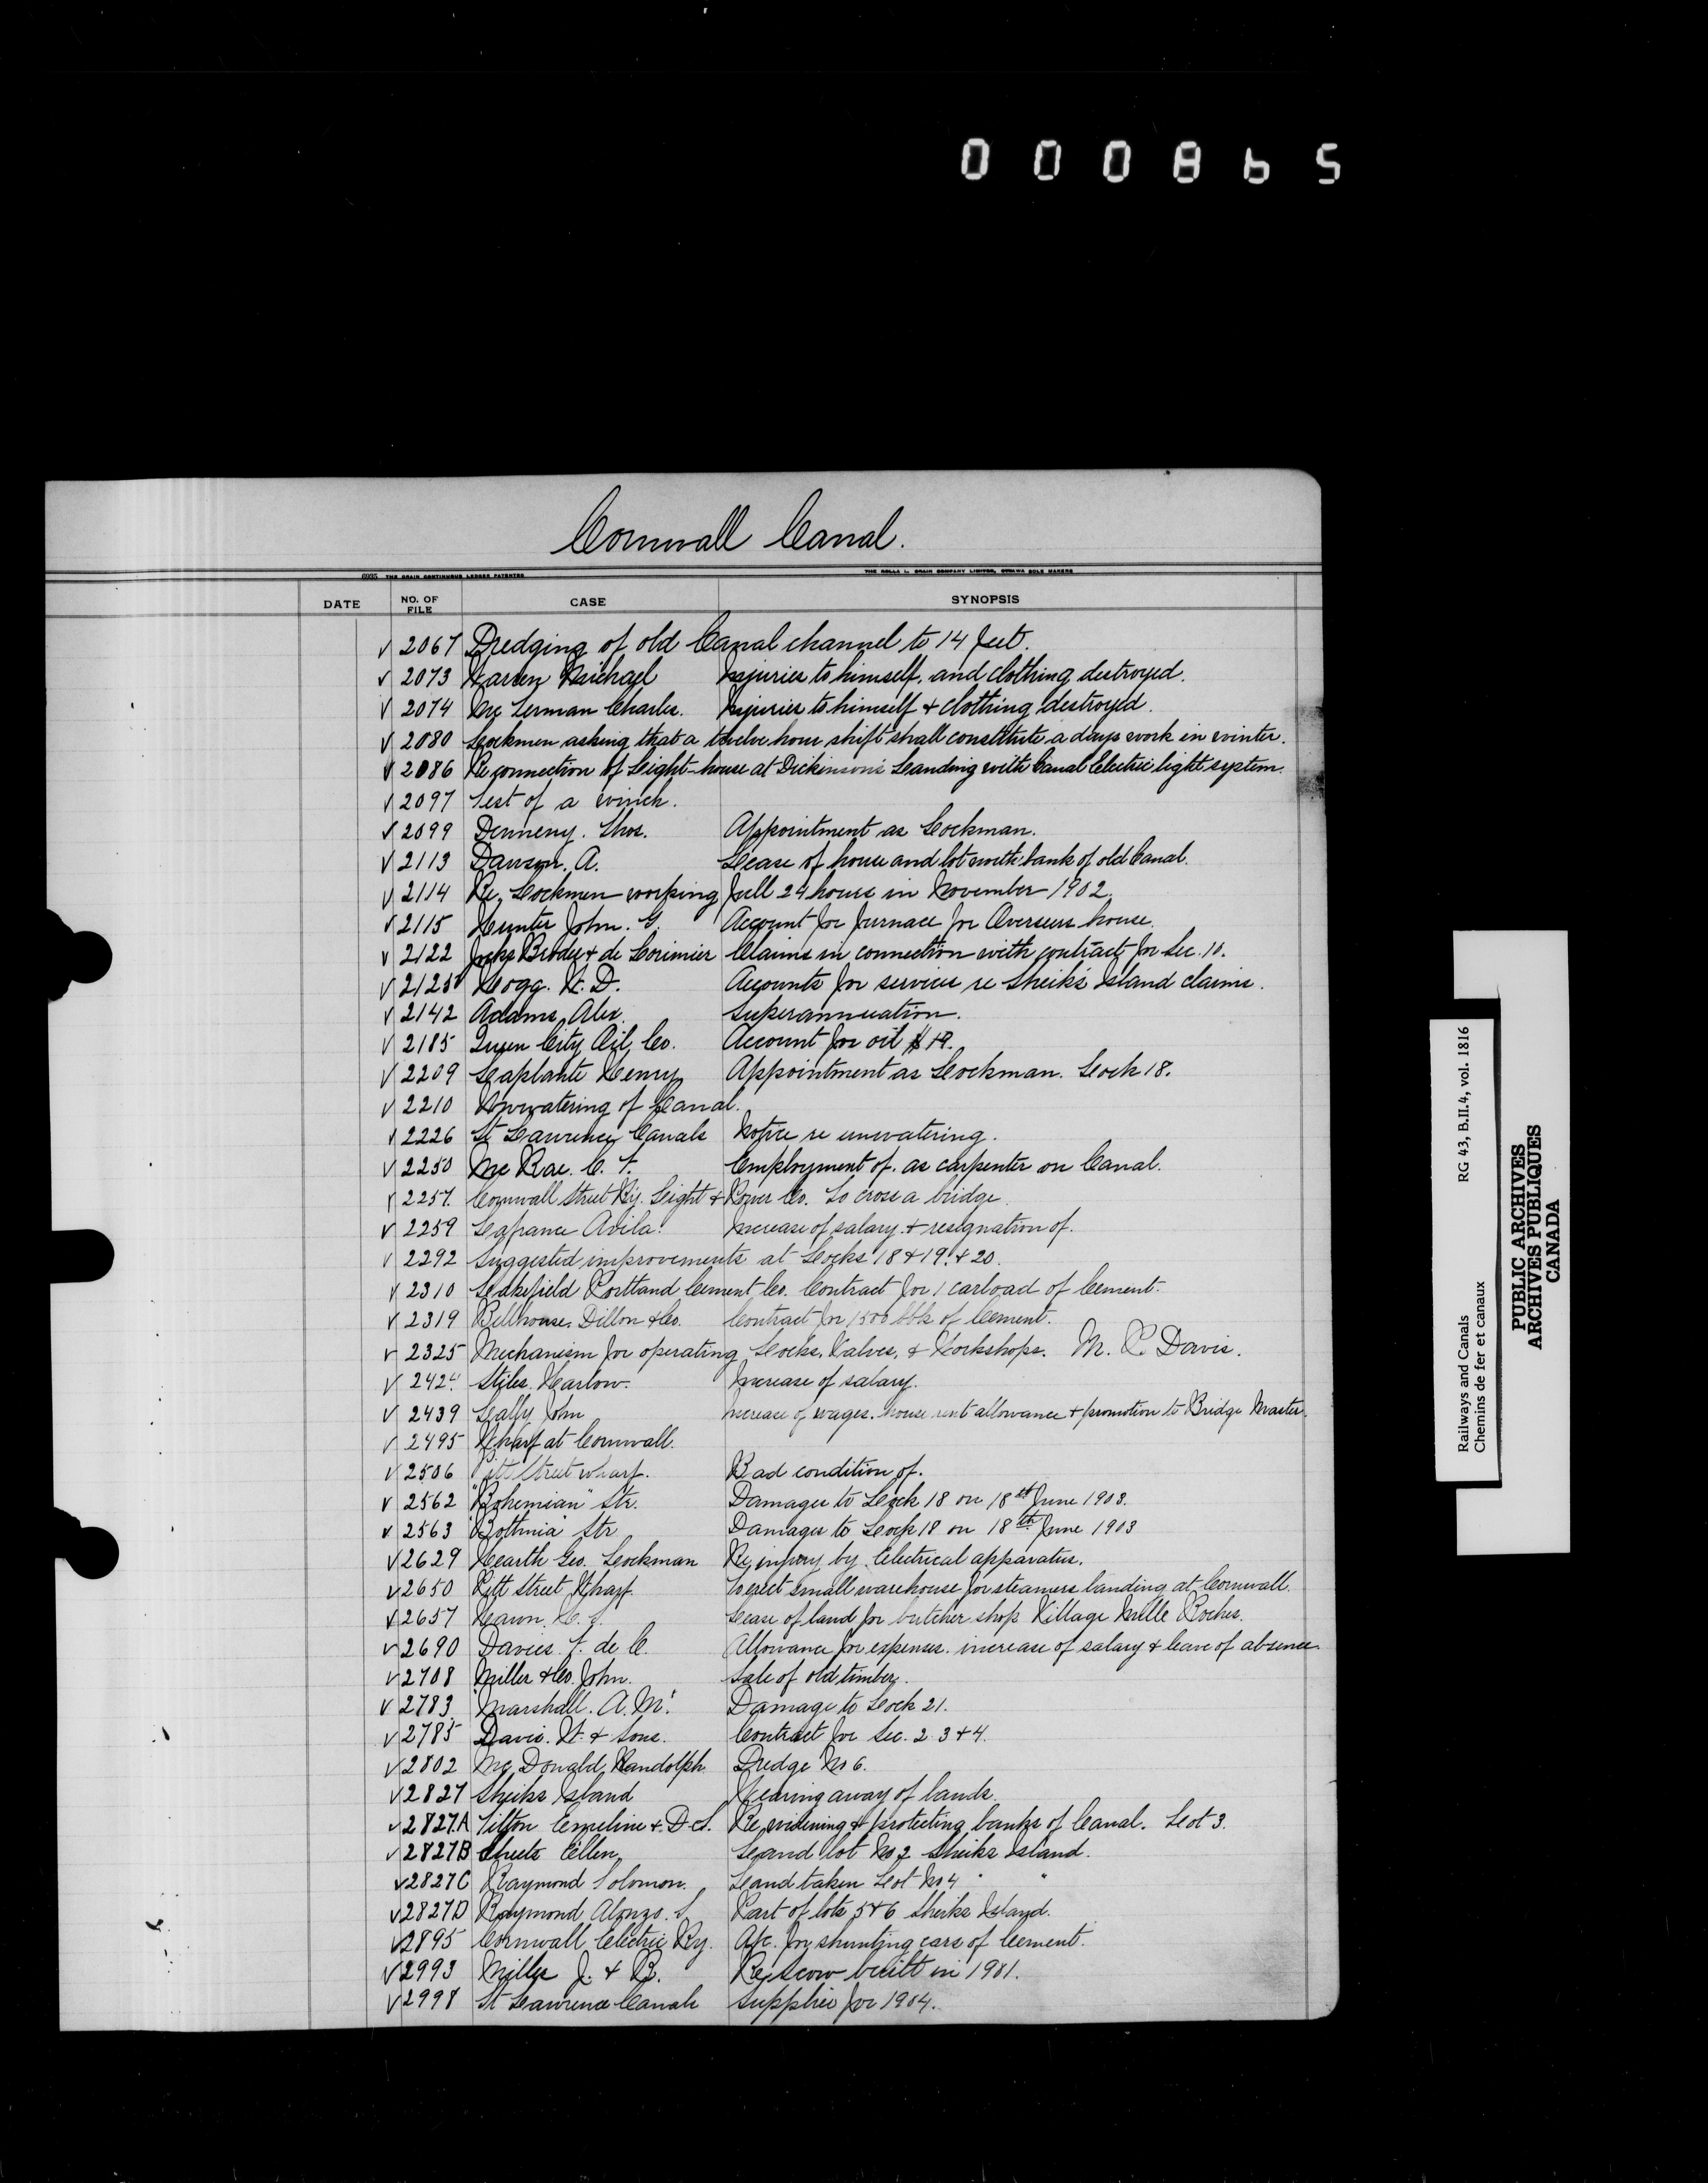 000865
Cornwall Canal.
6935 THE CRAIN CONTINUOUS LEDGER PATENTED THE ROLLA L. CRAIN COMPANY LIMITED, OTTAWA SOLE MAKERS
DATE NO. OF FILE CASE SYNOPSIS
✓ 2067 Dredging of old Canal channel to 14 feet.
✓ 2073 Warren Michael Injuries to himself, and clothing destroyed.
✓ 2074 Mc Lerman Charles. Injuries to himself & clothing destroyed.
✓ 2080 Lockmen asking that a twelve hour shift shall constitute a days work in winter.
✓ 2086 Re connection of Light-house at Dickinson's Landing with Canal Electric light system.
✓ 2097 Test of a winch.
✓ 2099 Denneny. Thos. Appointment as Lockman.
✓ 2113 Dawson. A. Lease of house and lot north bank of old Canal.
✓ 2114 Re, Lockmen working full 24 hours in November 1902.
✓ 2115 Hunter John. G. Account for furnace for Overseers house.
✓ 2122 Brodie & de Lorimier Claims in connection with contract for Sec. 10.
✓ 2125 Hogg. W. D. Accounts for services re Sheik's Island claims.
✓ 2142 Adams, Alex. Superannuation.
✓ 2185 Queen City Oil, Co. Account for oil $19.
✓ 2209 Laplante Henry Appointment as Lockman. Lock 18.
✓ 2210 Unwatering of Canal.
✓ 2226 St Lawrence Canals Notice re unwatering.
✓ 2250 Mc Rae. C. F. Employment of. as carpenter on Canal.
✓ 2257. Cornwall Street Ry. Light & Power Co. To cross a bridge.
✓ 2259 Lafrance Avila. Increase of salary & resignation of.
✓ 2292 Suggested improvements at Locks 18 & 19. & 20.
✓ 2310 Lakefield Portland Cement Co. Contract for 1 carload of Cement.
✓ 2319 Bellhouse, Dillon & Co. Contract for 1500 bbls of Cement.
✓ 2325 Mechanism for operating Locks, Valves, & Workshops. M. P. Davis.
✓ 242 Stiles. Harlow. Increase of salary.
✓ 2439 Lally John Increase of wages. house rent allowance & promotion to Bridge Master.
✓ 2495 Wharf at Cornwall.
✓ 2506 Pitt Street wharf. Bad condition of.
✓ 2562 "Bohemian" Str. Damages to Lock 18 on 18th June 1903.
✓ 2563 "Bothnia" Str Damages to Lock 18 on 18th June 1903
✓ 2629 Hearth Geo. Lockman Re, injury by Electrical apparatus.
✓ 2650 Pitt Street Wharf. To erect small warehouse for steamers landing at Cornwall.
✓ 2657 Hawn. H. J. Lease of land for butcher shop Village Mille Roches.
✓ 2690 Davies F. de C. Allowance for expenses. increase of salary & leave of absence.
✓ 2708 Miller & Co. John. Sale of old timber.
✓ 2783 "Marshall. A. M." Damage to Lock 21.
✓ 2785 Davis. W. & Sons. Contract for Sec. 2. 3 & 4.
✓ 2802 Mc Donald, Randolph. Dredge No 6.
✓ 2827 Sheiks Island Wearing away of lands.
✓ 2827A Tilton Emeline & D. S. Re, widening & protecting banks of Canal. Lot 3.
✓ 2827B Sheets Ellen, Land lot No 2 Sheiks Island.
✓ 2827C Raymond Solomon. Land taken Lot No 4 " "
✓ 2827D Raymond Alonzo. S Part of lots 5 & 6 Sheiks Island.
✓ 2895 Cornwall Electric Ry. A/c. for shunting cars of Cement.
✓ 2993 Miller J. & R. Re, scow built in 1901.
✓ 2998 St Lawrence Canals Supplies for 1904.
Railways and Canals RG 43, B.II.4, vol. 1816
Chemins de fer et canaux
PUBLIC ARCHIVES
ARCHIVES PUBLIQUES
CANADA